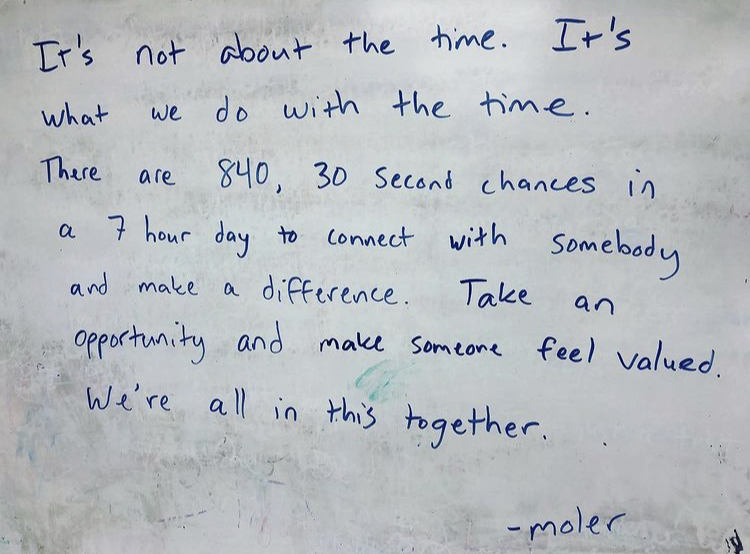 It's not about the time. It's
what we do with the time.
There are 840, 30 second chances in
a 7 hour day to connect with somebody
and make a difference. Take an
opportunity and make someone feel valued.
We're all in this together.
-moler